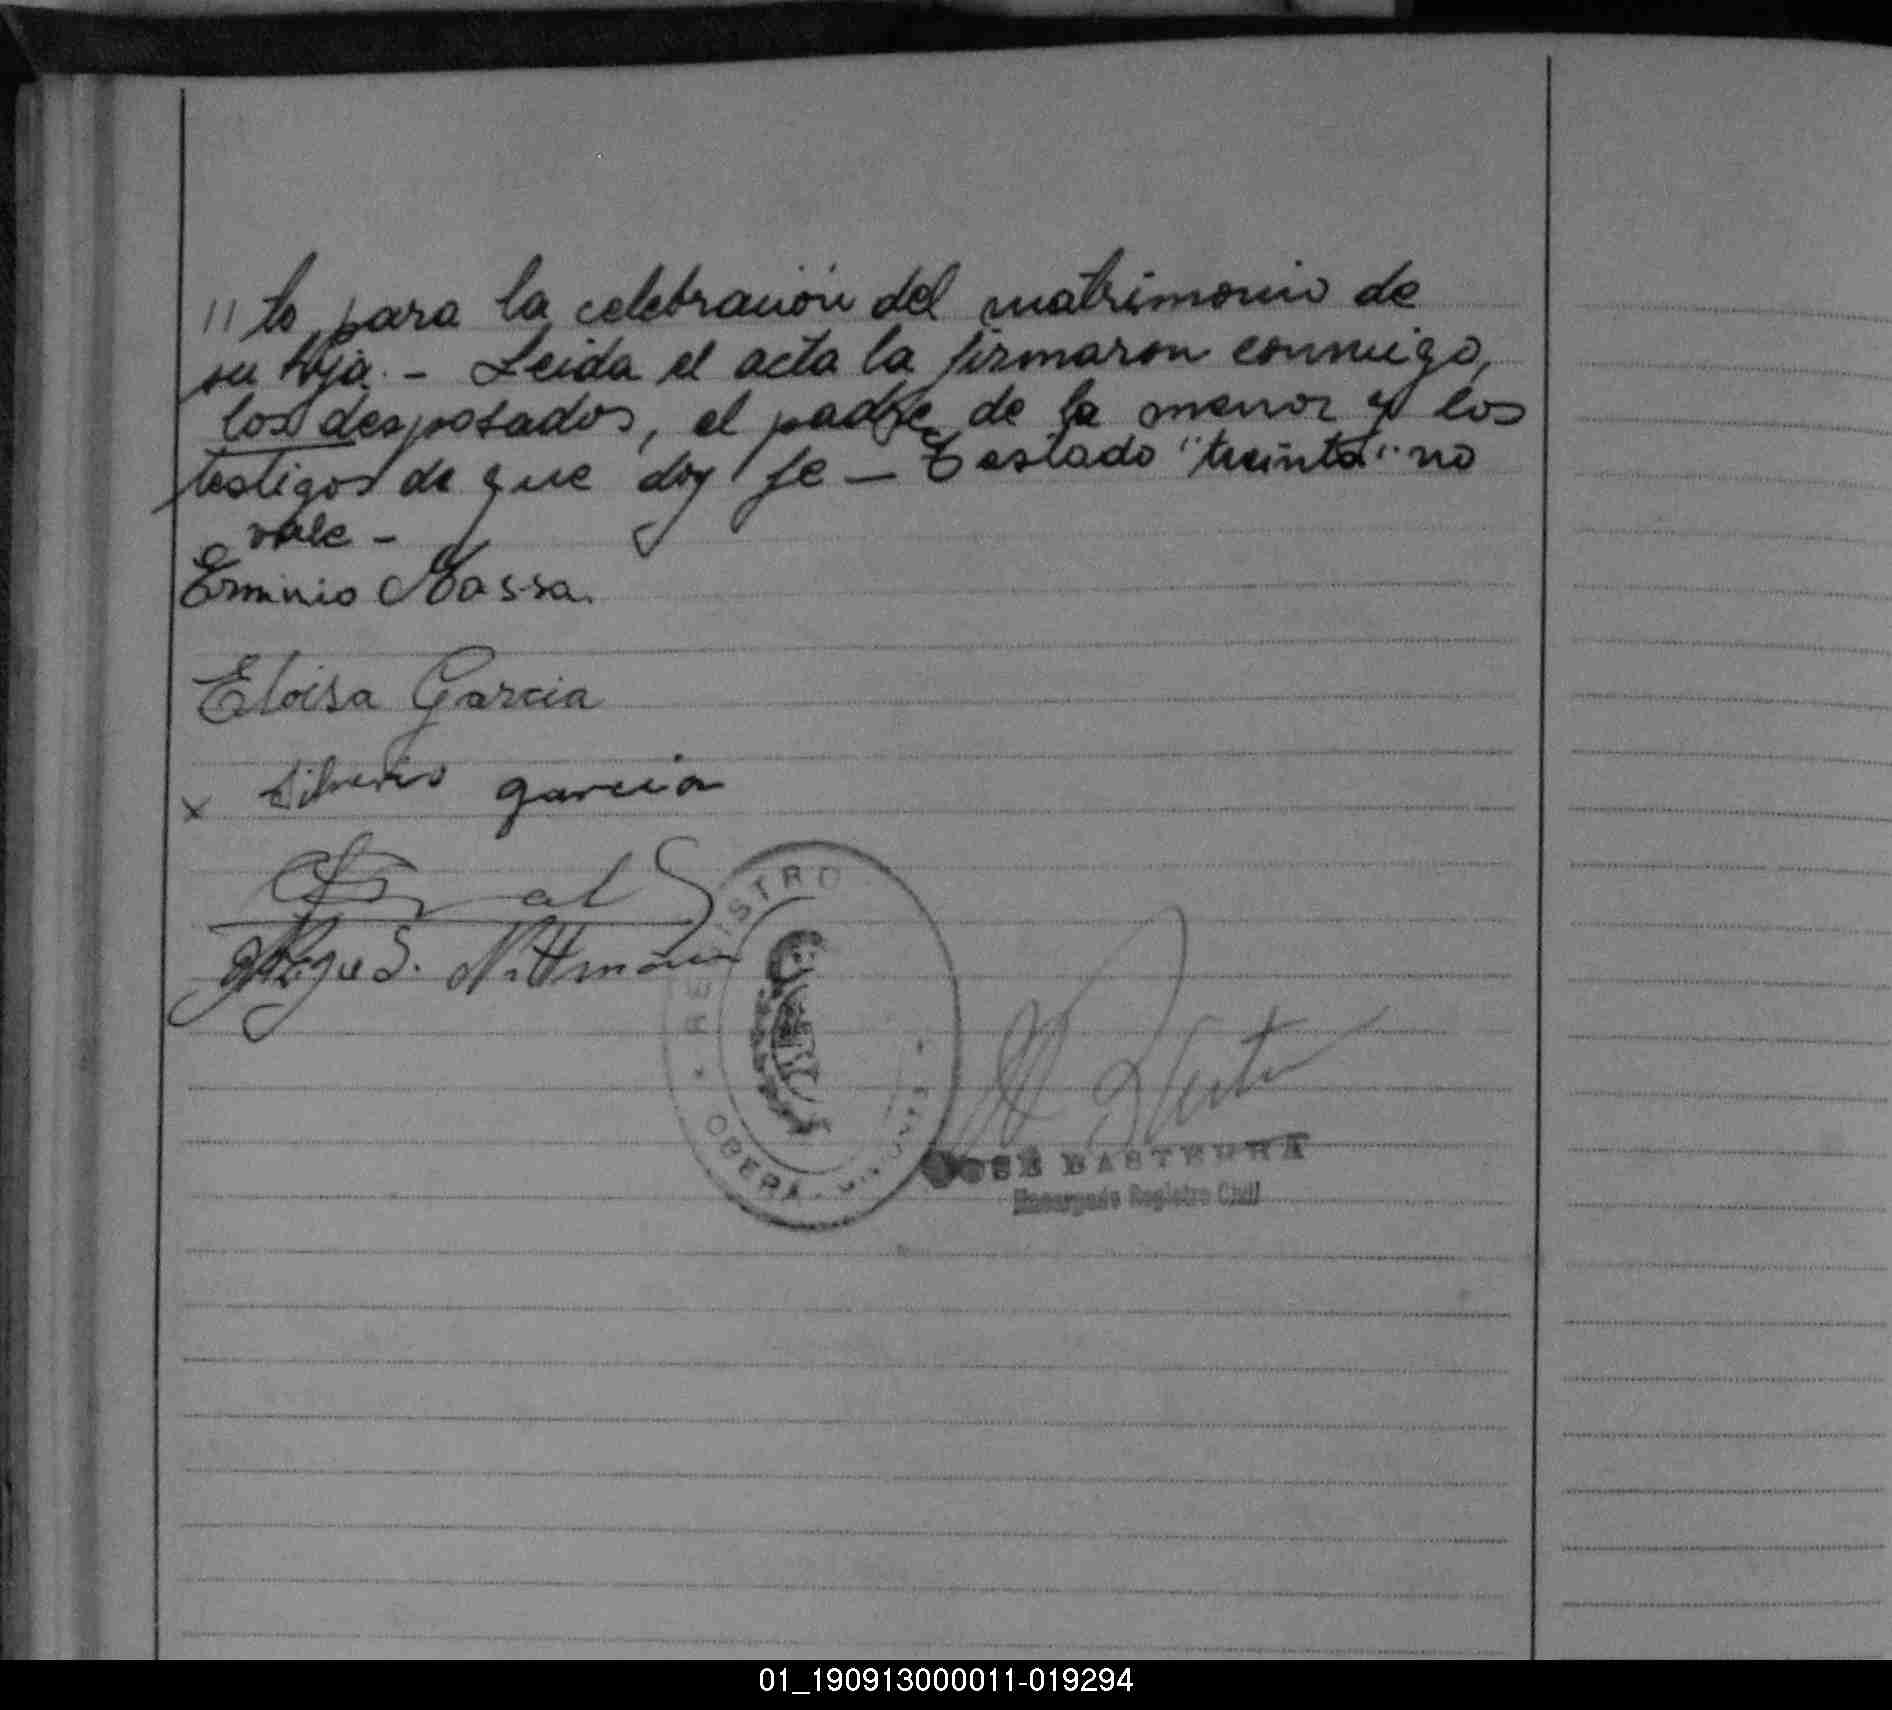 " to para la celebración del matrimonio de
su hija. - Leida el acta la firmaron conmigo,
los desposados, el padre de la menor y los
testigos de que doy fe - Testado "treinta" no
vale -
Erminio Massa.
Eloisa Garcia
x Silverio garcia
S. Nittmann
REGISTRO
OBERA - MISIONES
JOSÉ BASTERRA
Encargado Registro Civil
01_190913000011-019294